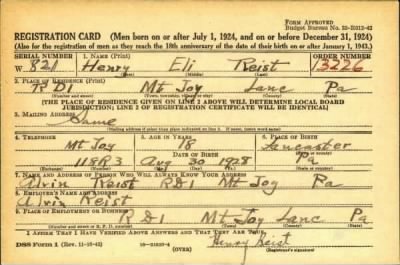 FORM APPROVED
REGISTRATION CARD (Men born on or after July 1, 1924, and on or before December 31, 1924)
(Also for the registration of men as they reach the 18th anniversary of the date of their birth on or after January 1, 1943.)
SERIAL NUMBER 1. NAME (Print) ORDER NUMBER
W 821 Henry Eli Reist 3226
(First) (Middle) (Last)
2. PLACE OF RESIDENCE (Print)
R D 1 Mt Joy Lanc Pa
(Number and street) (County) (State)
[THE PLACE OF RESIDENCE GIVEN ON LINE 2 ABOVE WILL DETERMINE LOCAL BOARD
JURISDICTION; LINE 2 OF REGISTRATION CERTIFICATE WILL BE IDENTICAL]
3. MAILING ADDRESS
Same
4. TELEPHONE 5. AGE IN YEARS 6. PLACE OF BIRTH
Mt Joy 18 Lancaster
DATE OF BIRTH
118R3 Aug 30 1928 Pa
7. NAME AND ADDRESS OF PERSON WHO WILL ALWAYS KNOW YOUR ADDRESS
Alvin Reist R D 1 Mt Joy Pa
8. EMPLOYER'S NAME AND ADDRESS
Alvin Reist
9. PLACE OF EMPLOYMENT OR BUSINESS
R D 1 Mt Joy Lanc Pa
I AFFIRM THAT I HAVE VERIFIED ABOVE ANSWERS AND THAT THEY ARE TRUE.
DSS Form 1 (OVER) Henry Reist
(Registrant's signature)